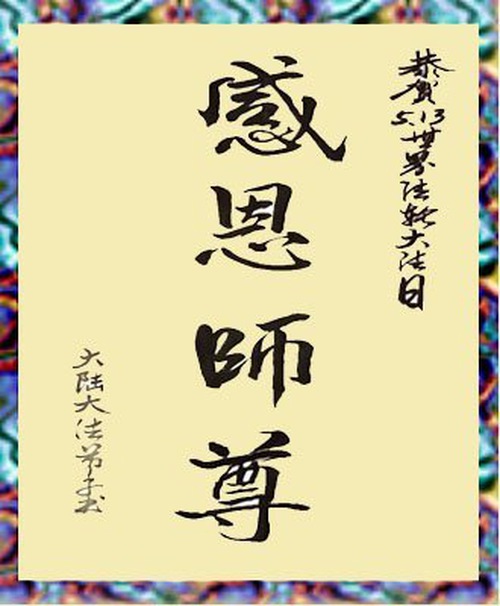 恭賀5.13世界法輪大法日
感恩師尊
大陆大法弟子